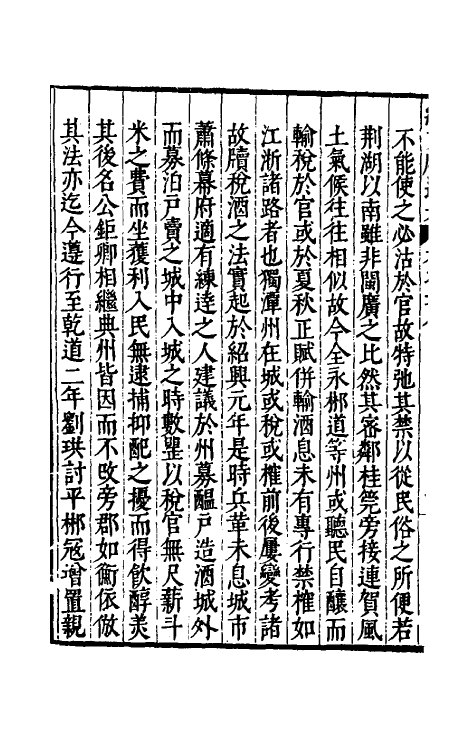 不能使之必沽於官故特弛其禁以從民俗之所便若
荆湖以南雖非閩廣之比然其密鄰桂筦旁接連賀風
土氣候往往相似故今全永郴道等州或聽民自釀而
輸稅於官或於夏秋正賦併輸酒息未有專行禁榷如
江浙諸路者也獨潭州在城或稅或榷前後屢變考諸
故牘稅酒之法實起於紹興元年是時兵革未息城市
蕭條幕府適有練逹之人建議於州募醖戶造酒城外
而募泊戶賣之城中入城之時數罌以稅官無尺薪斗
米之費而坐獲利入民無逮捕抑配之擾而得飲醇美
其後名公鉅卿相繼典州皆因而不改旁郡如衡依倣
其法亦迄今遵行至乾道二年劉珙討平郴冦增置親